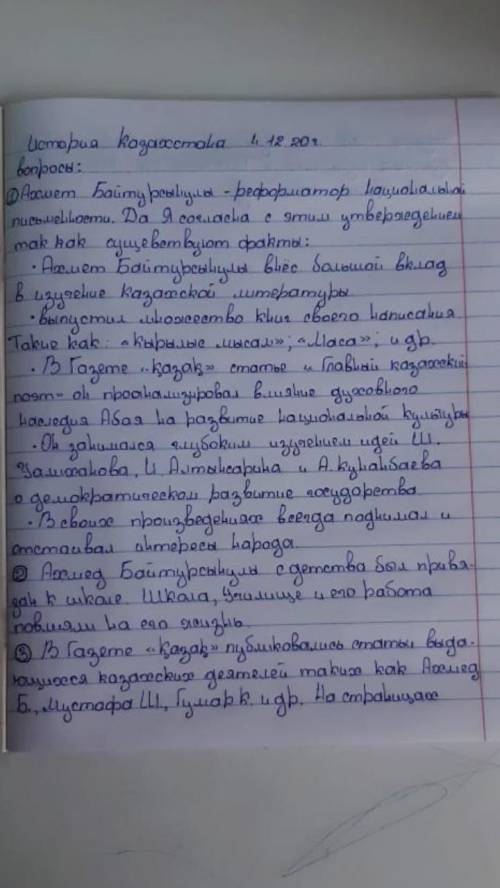 История Казахстана 4.12.20г.
вопросы:
① Ахмет Байтурсынулы - реформатор национальной
письменности. Да Я согласна с этим утверждением
так как существуют факты:
• Ахмет Байтурсынулы внёс большой вклад
в изучение казахской литературы
• выпустил множество книг своего написания
Такие как: «Кырык мысал»; «Маса»; и др.
• В Газете «Қазақ» статье и Главный казахский
поэт - он проанализировал влияние духовного
наследия Абая на развитие национальной культуры
• Он занимался глубоким изучением идей Ш.
Уалиханова, И. Алтынсарина и А. Кунанбаева
о демократическом развитие государства
• В своих произведениях всегда поднимал и
отстаивал интересы народа.
② Ахмед Байтурсынулы с детства был привя-
зан к школе. Школа, Училище и его работа
повлияли на его жизнь.
③ В Газете «Қазақ» публиковались статьи выда-
ющихся казахских деятелей таких как Ахмед
Б., Мустафа Ш., Гумар К. и др. На страницах